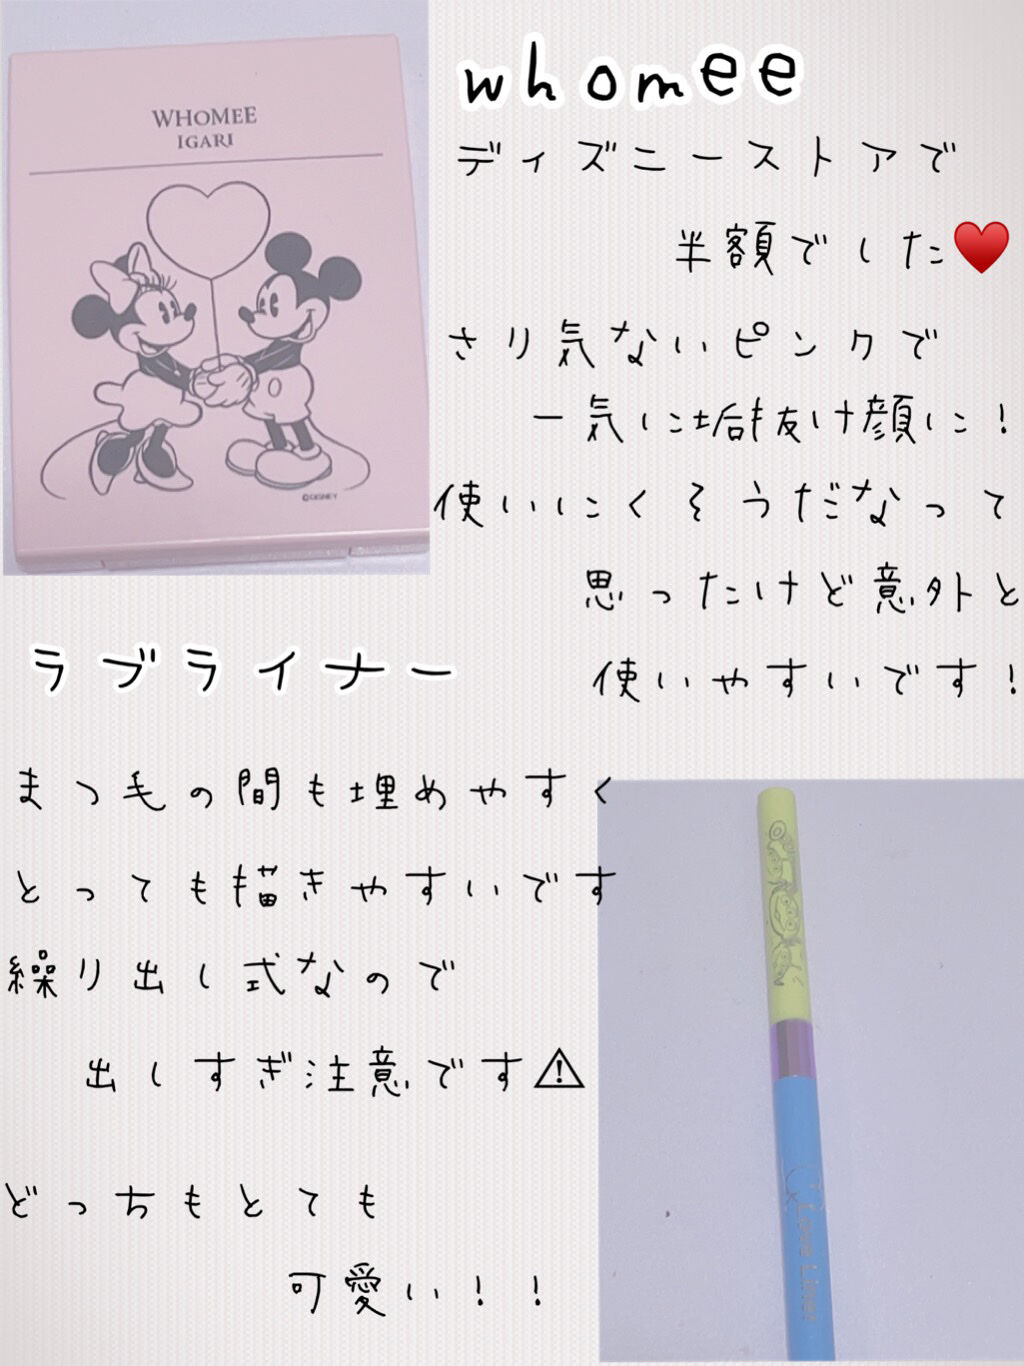 WHOMEE
IGARI
©DISNEY
whomee
ディズニーストアで
半額でした♥
さり気ないピンクで
一気に垢抜け顔に！
使いにくそうだなって
思ったけど意外と
使いやすいです！
ラブライナー
まつ毛の間も埋めやすく
とっても描きやすいです
繰り出し式なので
出しすぎ注意です⚠
どっちもとても
可愛い！！
Love Liner